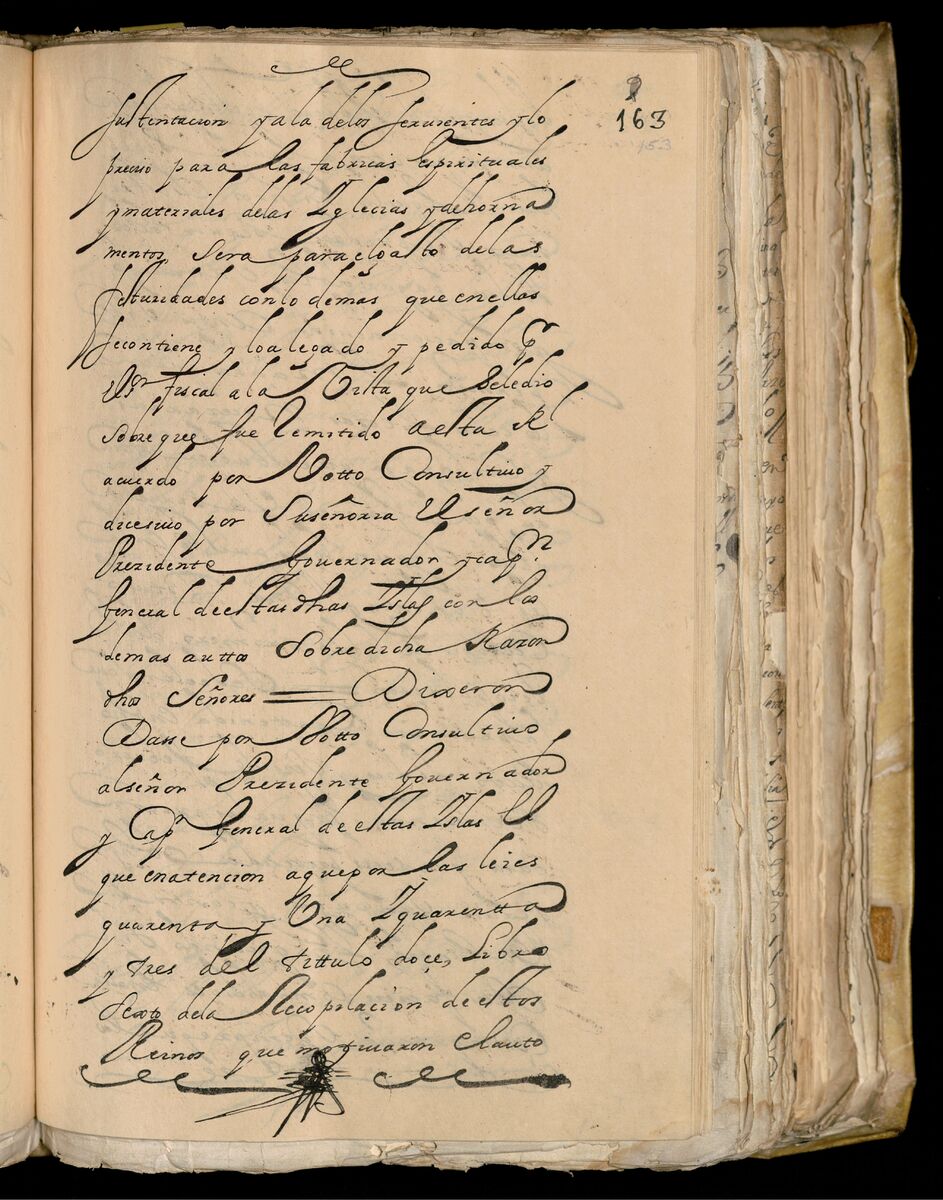 163
153
sustentacion y a la de los seruientes y lo
preciso para las fabricas espirituales
y materiales de las Yglecias y de horna
mentos, sera para el gasto de las
festiuidades con lo demas que en ellas
se contiene y lo alegado y pedido pr
el sr fiscal a la Vista que se le dio
sobre que fue Remitido a esta Rl
acuerdo por Votto Consultiuo y
dicesiuo por Su señoria el señor
Prezidente Gouernador y capn
general de estas dhas Yslas con los
demas auttos Sobre dicha Razon
dhos Señores = Dixeron
Dasse por Votto Consultiuo
al señor Prezidente Gouernador
y Capn General de estas Yslas El
que en atencion a que por las leies
quarenta y Una Y quarentta
y tres del tittulo doçe, Libro
Sexto de la Recopilacion de estos
Reinos que motiuaron el auto